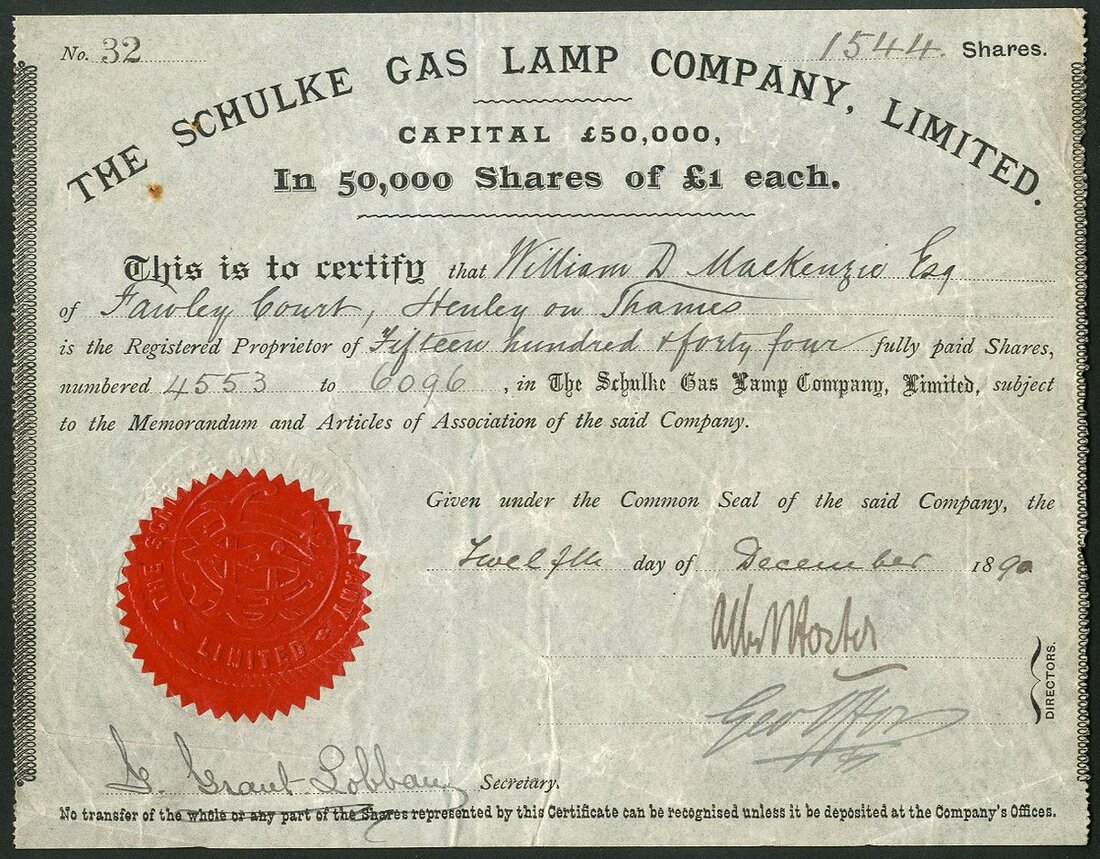 No. 32
1544 Shares.
THE SCHULKE GAS LAMP COMPANY, LIMITED.
CAPITAL £50,000,
In 50,000 Shares of £1 each.
This is to certify that William D Mackenzie Esq
of Fawley Court, Henley on Thames
is the Registered Proprietor of Fifteen hundred & forty four fully paid Shares,
numbered 4553 to 6096, in The Schulke Gas Lamp Company, Limited, subject
to the Memorandum and Articles of Association of the said Company.
Given under the Common Seal of the said Company, the
Twelfth day of December 1890
DIRECTORS.
THE SCH
LIMITED
G. Grant-Lobban Secretary.
No transfer of the whole or any part of the Shares represented by this Certificate can be recognised unless it be deposited at the Company's Offices.